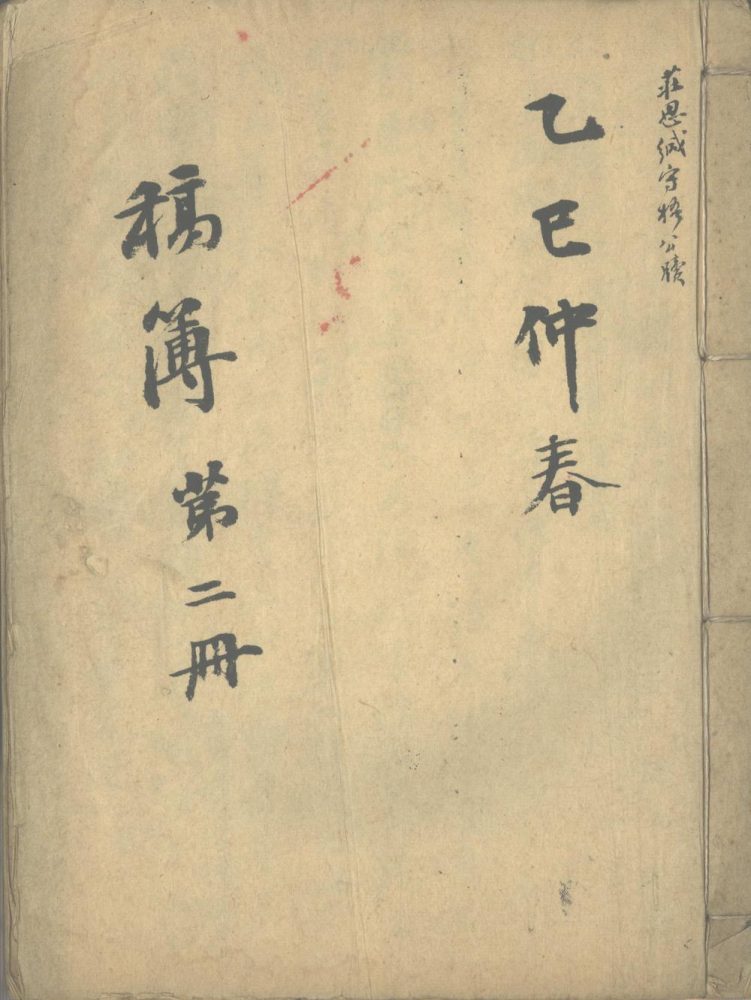 莊思緘守梧公牘
乙巳仲春
稿簿第二冊